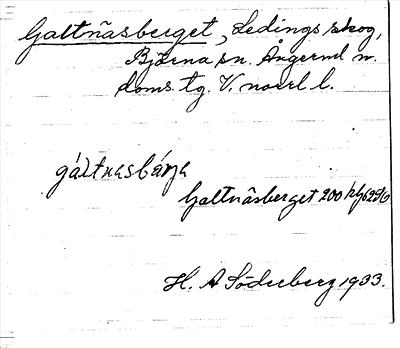 Galtnäsberget, Ledings skog,
Björna sn. Ångerml n.
doms. tg. V. norrl l.
gáltnasbárja
Galtnäsberget 200
H. A Söderberg 1933.